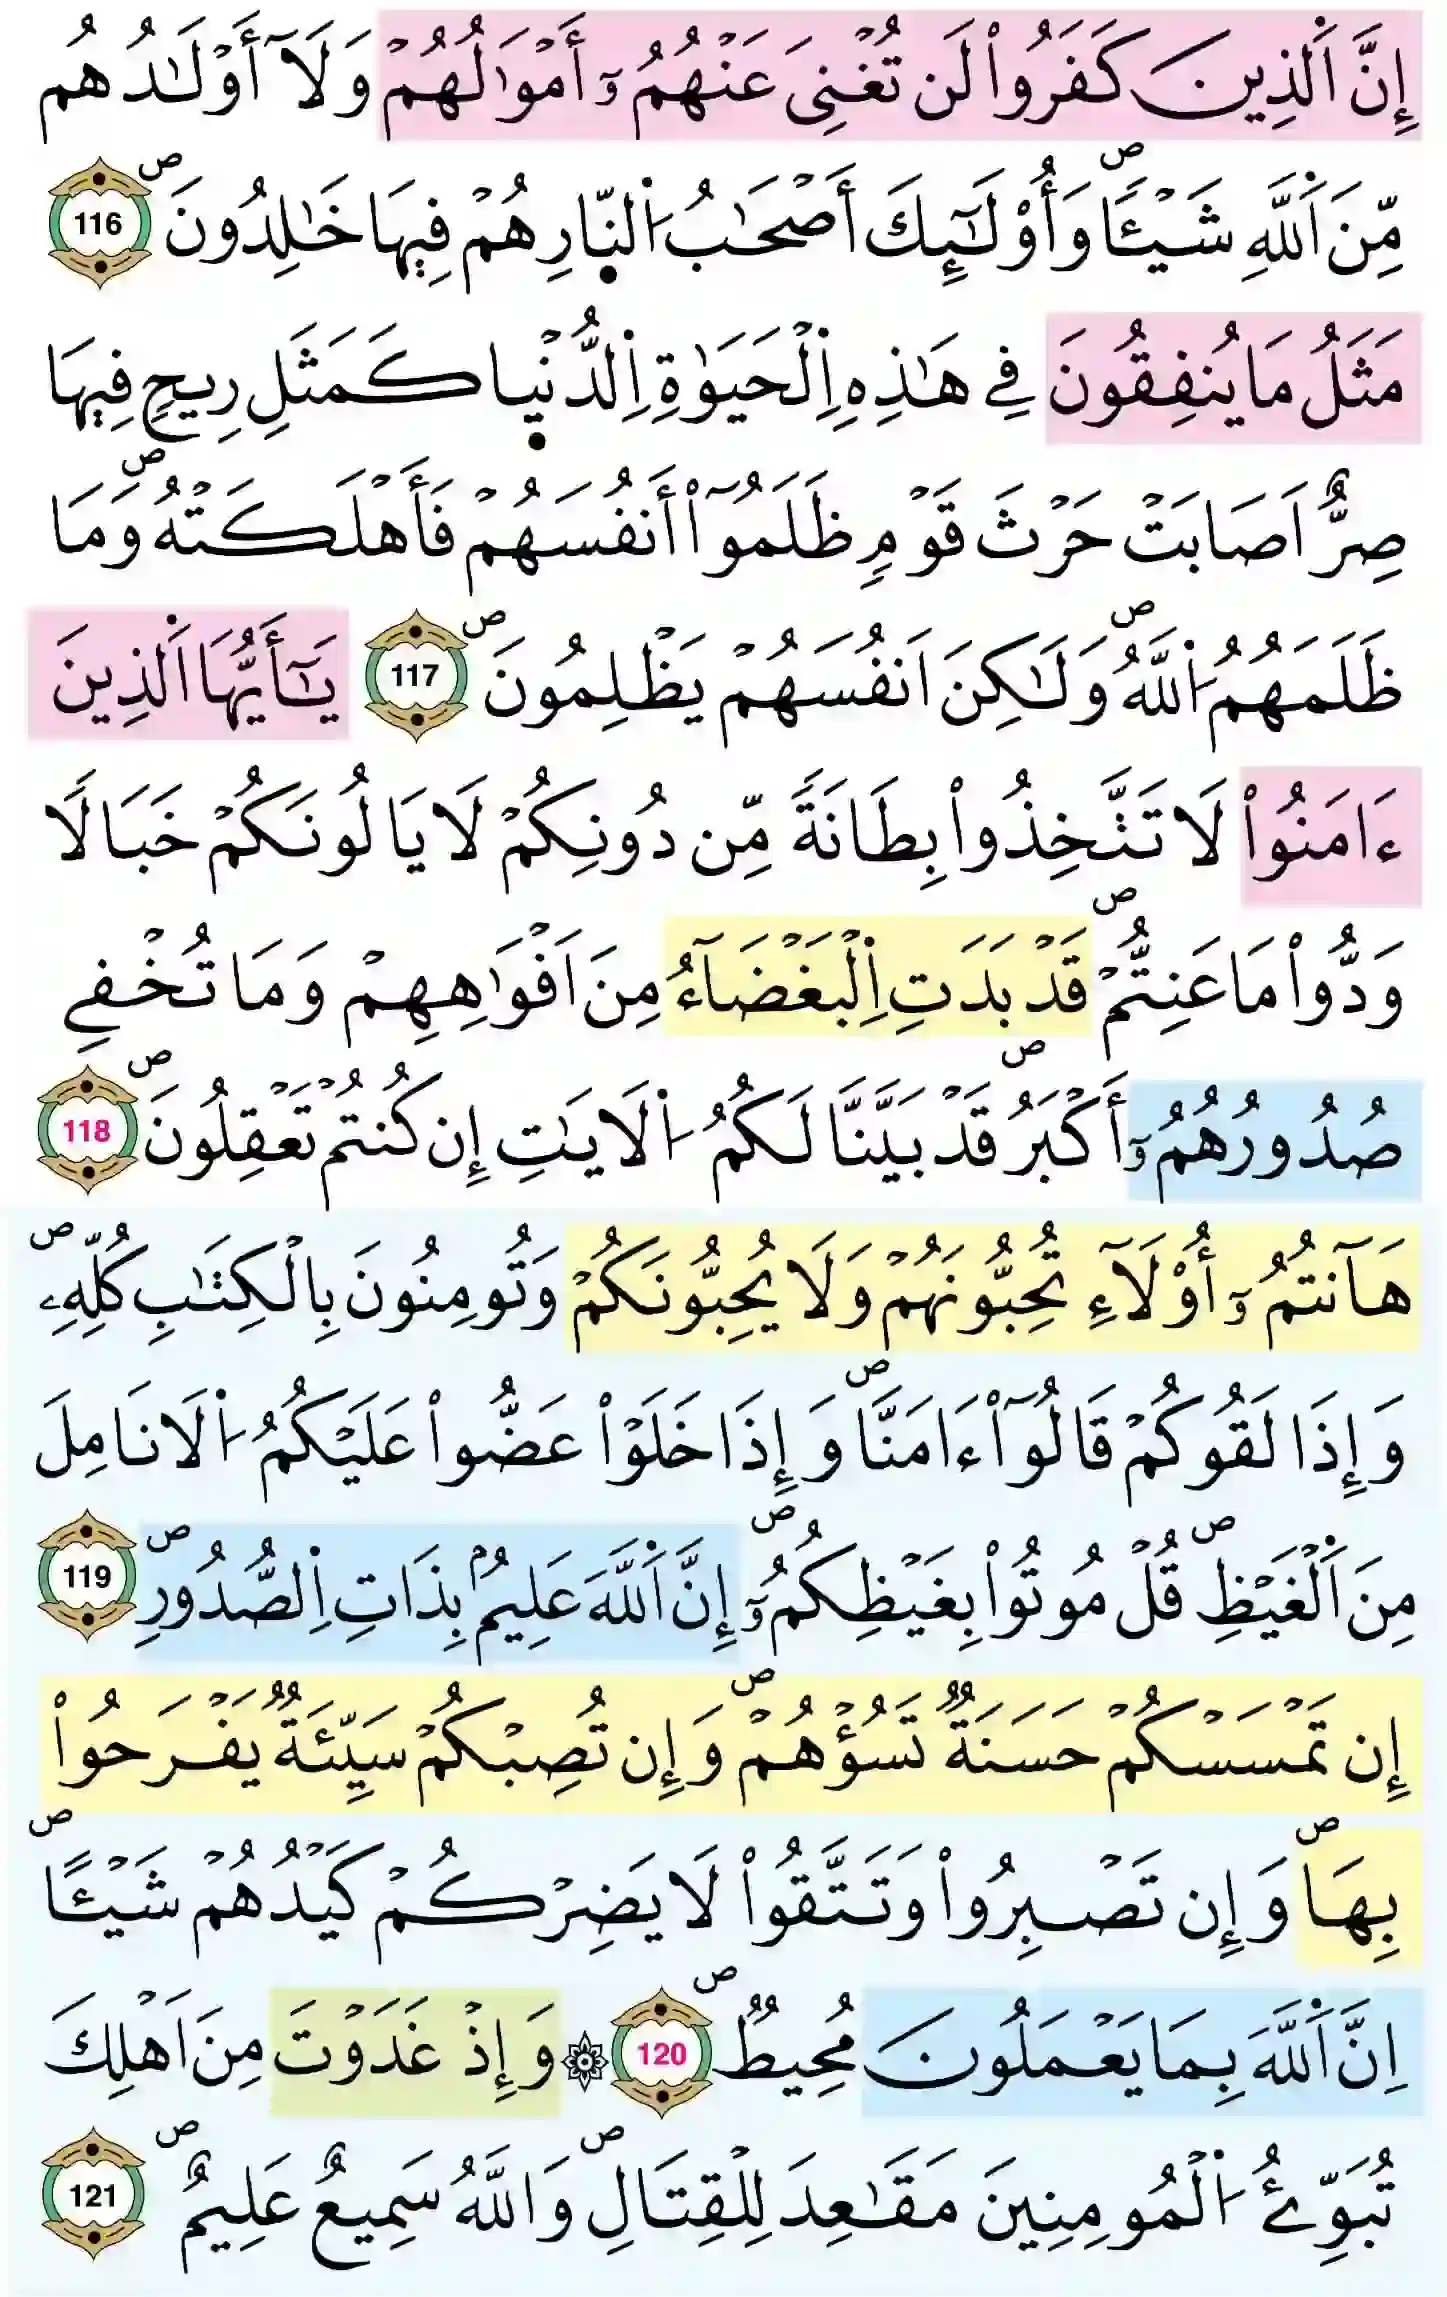 إِنَّ اَ۬لذِينَ كَفَرُواْ لَن تُغْنِيَ عَنْهُمُۥٓ أَمْوَٰلُهُمْ وَلَآ أَوْلَٰدُهُم
مِّنَ اَ۬للَّهِ شَيْـٔاًۖ وَأُوْلَٰٓئِكَ أَصْحَٰبُ اُ۬لنّ۪ارِ هُمْ فِيهَا خَٰلِدُونَۖ 116
مَثَلُ مَا يُنفِقُونَ فِے هَٰذِهِ اِ۬لْحَيَوٰةِ اِ۬لدُّنْي۪ا كَمَثَلِ رِيحٖ فِيهَا
صِرٌّ اَصَابَتْ حَرْثَ قَوْمٖ ظَلَمُوٓاْ أَنفُسَهُمْ فَأَهْلَكَتْهُۖ وَمَا
ظَلَمَهُمُ اُ۬للَّهُۖ وَلَٰكِنَ اَنفُسَهُمْ يَظْلِمُونَۖ 117 يَٰٓأَيُّهَا اَ۬لذِينَ
ءَامَنُواْ لَا تَتَّخِذُواْ بِطَانَةٗ مِّن دُونِكُمْ لَا يَالُونَكُمْ خَبَالٗا
وَدُّواْ مَا عَنِتُّمْۖ قَدْ بَدَتِ اِ۬لْبَغْضَآءُ مِنَ اَفْوَٰهِهِمْ وَمَا تُخْفِے
صُدُورُهُمُۥٓ أَكْبَرُۖ قَدْ بَيَّنَّا لَكُمُ اُ۬لَايَٰتِ إِن كُنتُمْ تَعْقِلُونَۖ 118
هَآنتُمُۥٓ أُوْلَآءِ تُحِبُّونَهُمْ وَلَا يُحِبُّونَكُمْ وَتُومِنُونَ بِالْكِتَٰبِ كُلِّهِۦۖ
وَإِذَا لَقُوكُمْ قَالُوٓاْ ءَامَنَّاۖ وَإِذَا خَلَوْاْ عَضُّواْ عَلَيْكُمُ اُ۬لَانَامِلَ
مِنَ اَ۬لْغَيْظِۖ قُلْ مُوتُواْ بِغَيْظِكُمُۥٓۖ إِنَّ اَ۬للَّهَ عَلِيمُۢ بِذَاتِ اِ۬لصُّدُورِۖ 119
إِن تَمْسَسْكُمْ حَسَنَةٞ تَسُؤْهُمْۖ وَإِن تُصِبْكُمْ سَيِّئَةٞ يَفْرَحُواْ
بِهَاۖ وَإِن تَصْبِرُواْ وَتَتَّقُواْ لَا يَضِرْكُمْ كَيْدُهُمْ شَيْـٔاًۖ
اِنَّ اَ۬للَّهَ بِمَا يَعْمَلُونَ مُحِيطٞۖ 120 ۞ وَإِذْ غَدَوْتَ مِنَ اَهْلِكَ
تُبَوِّئُ اُ۬لْمُومِنِينَ مَقَٰعِدَ لِلْقِتَالِۖ وَاللَّهُ سَمِيعٌ عَلِيمٌۖ 121